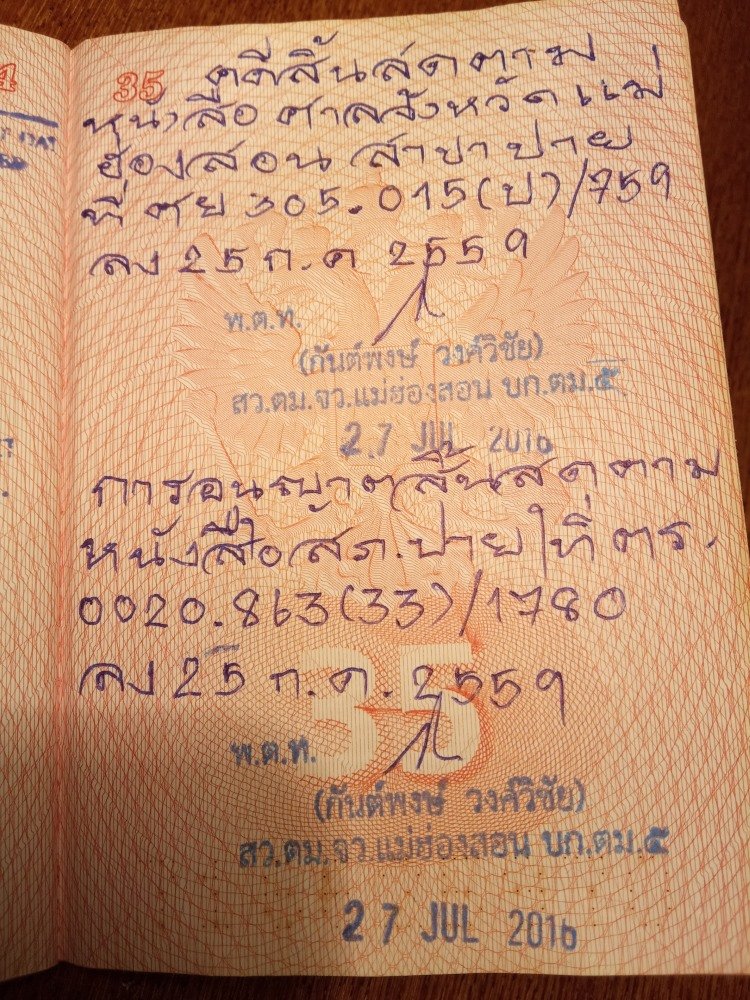 35 คดีสิ้นสุดตาม
หนังสือ ศาลจังหวัดแม่
ฮ่องสอน สาขาปาย
ที่ ศย 305.015(ป)/759
ลง 25 ก.ค 2559
พ.ต.ท.
(กันต์พงษ์ วงค์วิชัย)
สว.ตม.จว.แม่ฮ่องสอน บก.ตม.๕
27 JUL 2016
การอนุญาตสิ้นสุดตาม
หนังสือ สภ.ปาย ที่ ตร.
0020.863(33)/1780
ลง 25 ก.ค. 2559
35
พ.ต.ท.
(กันต์พงษ์ วงค์วิชัย)
สว.ตม.จว.แม่ฮ่องสอน บก.ตม.๕
27 JUL 2016